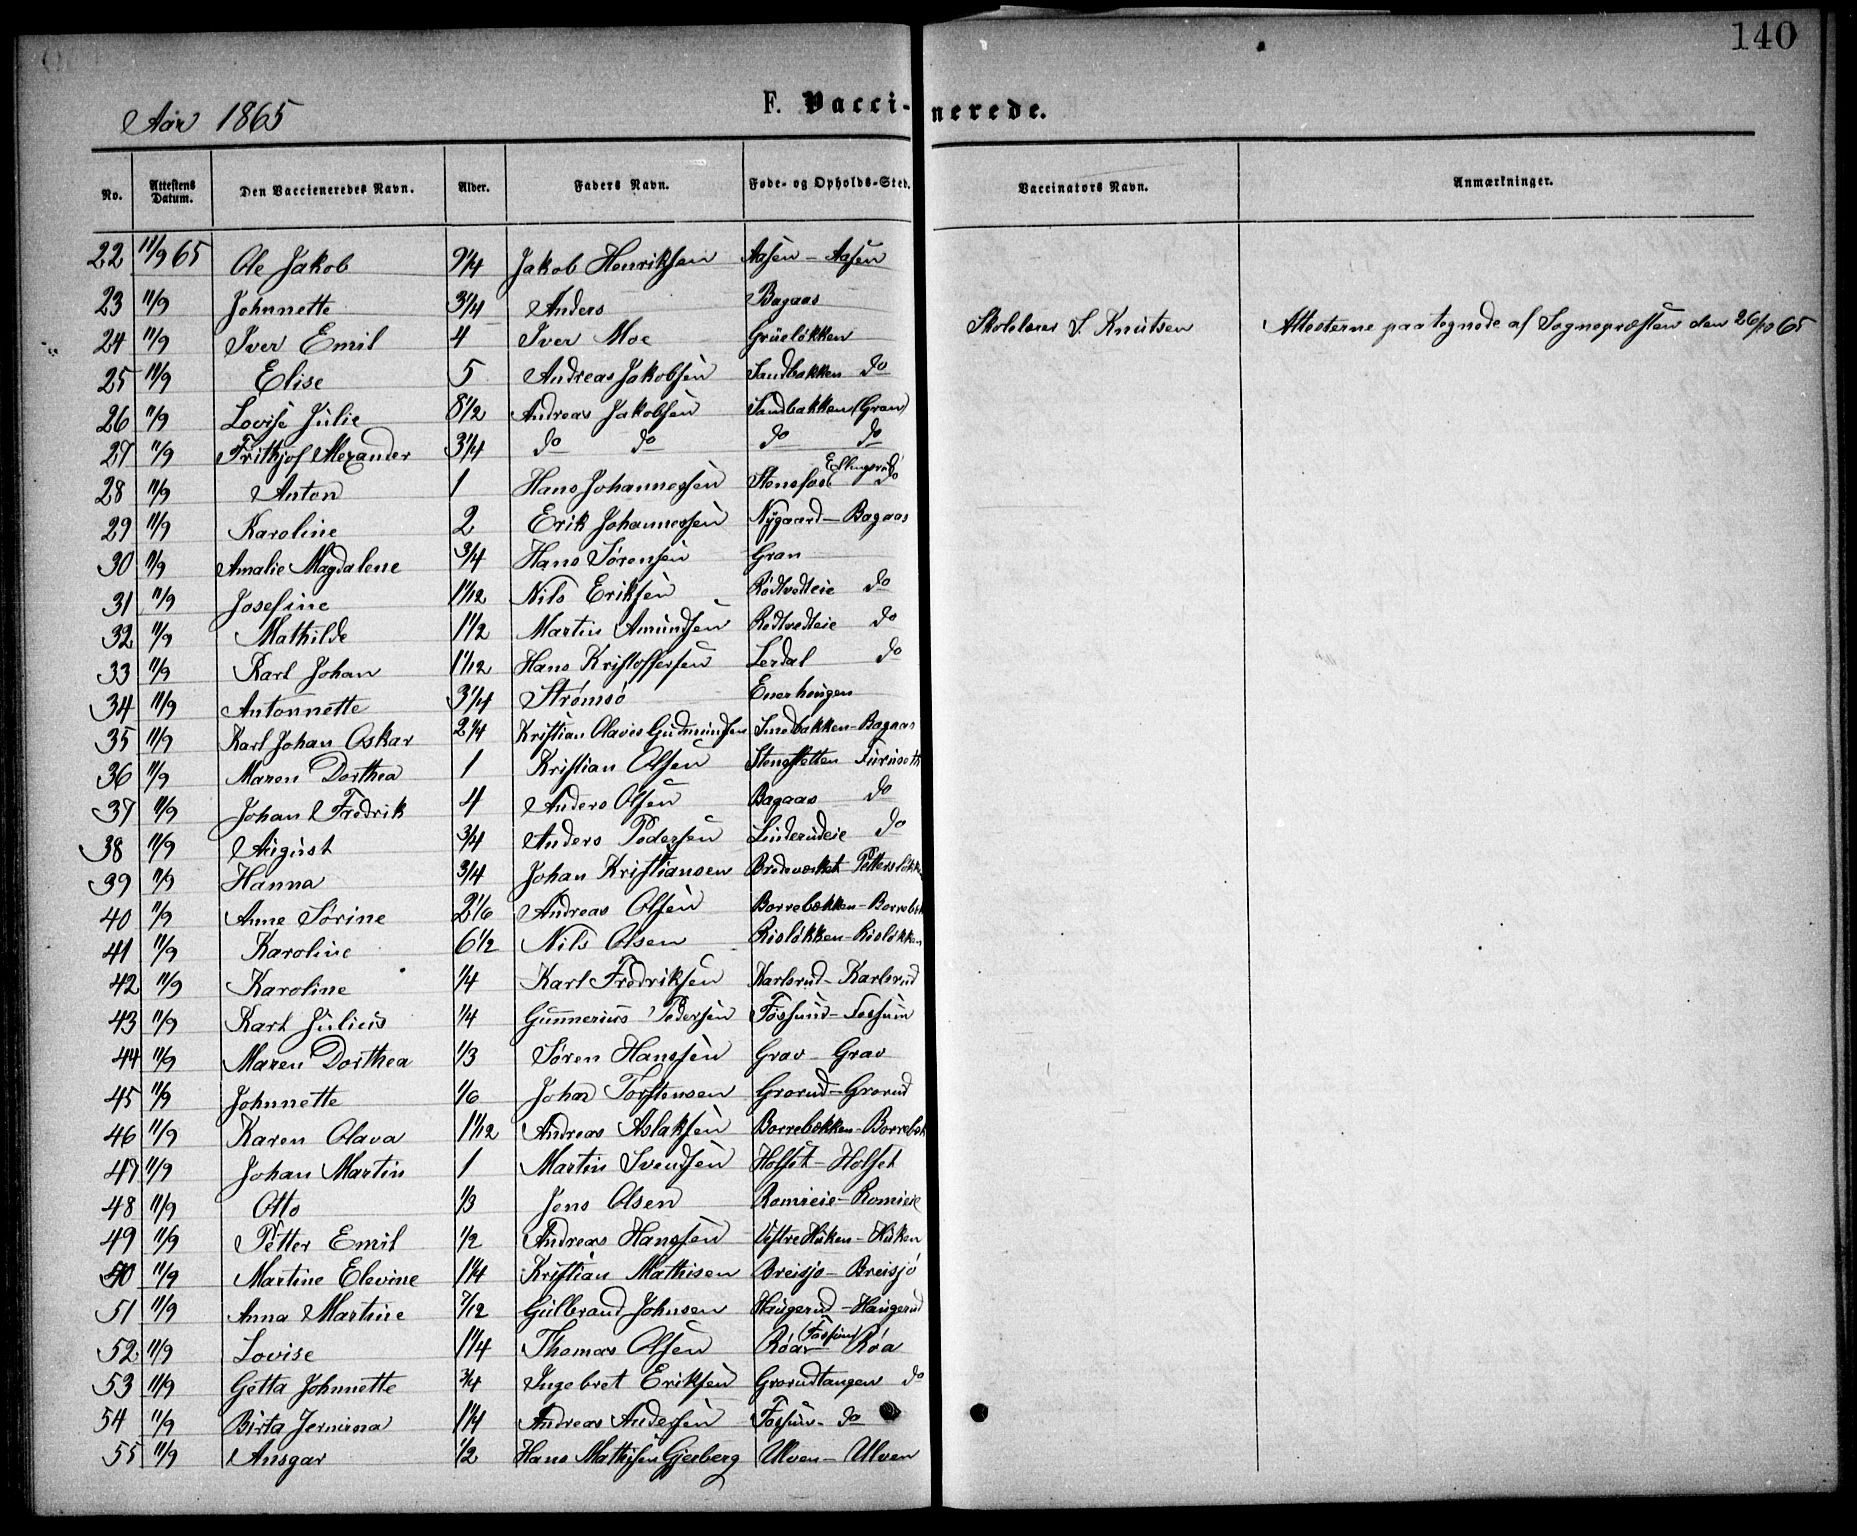 140
Aar 1865
F. Vaccinerede.
No. Attestens Datum. Den Vaccieneredes Navn. Alder. Faders Navn. Føde- og Opholds-Sted. Vaccinators Navn. Anmærkninger.
22 11/9 65 Ole Jakob 9 1/4 Jakob Henriksen Aasen - Aasen
23 11/9 Johnnette 3 1/4 Anders Bagaas
24 11/9 Iver Emil 4 Iver Moe Grüeløkken Skolelærer S. Knutsen Attesterne paategnede af Sognepræsten den 26/10 65
25 11/9 Elise 5 Andreas Jakobsen Sandbakken do
26 11/9 Lovise Julie 8 1/2 Andreas Jakobsen Sandbakken (Gran)
27 11/9 Frithjof Alexander 3 1/4 do do do do
28 11/9 Anton 1 Hans Johannessen Stensfos Ellingsrud do
29 11/9 Karoline 2 Erik Johannessen Nygaard - Bagaas
30 11/9 Amalie Magdalene 3/4 Hans Sørensen Gran
31 11/9 Josefine 1 1/12 Nils Eriksen Rødtvedteie do
32 11/9 Mathilde 1 1/2 Martin Amundsen Rødtvedteie do
33 11/9 Karl Johan 1 1/12 Hans Kristoffersen Lerdal do
34 11/9 Antonnette 3 1/4 Strømsø Enerhougen
35 11/9 Karl Johan Oskar 2 1/4 Kristian Olaves Gudmundsen Smedbakken - Bagaas
36 11/9 Maren Dorthea 1 Kristian Olsen Stengsletten Furuseth
37 11/9 Johan Fredrik 4 Anders Olsen Bagaas do
38 11/9 August 3/4 Anders Pedersen Linderudeie do
39 11/9 Hanna 3/4 Johan Kristiansen Bredeverket Pettersløkk
40 11/9 Anne Sørine 2 1/6 Andreas Olsen Borrebekken - Borrebek
41 11/9 Karoline 6 1/2 Nils Olsen Risløkken - Risløkken
42 11/9 Karoline 1/4 Karl Fredriksen Karlsrud - Karlsrud
43 11/9 Karl Julius 1/4 Gunnerius Pedersen Fossum - Fossum
44 11/9 Maren Dorthea 1/3 Søren Hanssen Grav - Grav
45 11/9 Johnnette 1/6 Johan Torstensen Grorud - Grorud
46 11/9 Karen Olava 1 1/12 Andreas Aslaksen Borrebekken - Borrebek
47 11/9 Johan Martin 1 Martin Svendsen Holset - Holset
48 11/9 Otto 1/3 Jens Olsen Romieie - Romieie
49 11/9 Petter Emil 1/2 Andreas Hanssen Vestre Huken - Huken
50 11/9 Martine Elevine 1 1/4 Kristian Mathisen Breisjø - Breisjø
51 11/9 Anna Martine 7/12 Gulbrand Johnsen Haugerud - Haugerud
52 11/9 Lovise 1 1/4 Thomas Olsen Røa (Fossum) Røa
53 11/9 Getta Johnnette 3/4 Ingebret Eriksen Grorudtangen do
54 11/9 Birta Jermina 1 1/4 Andreas Andersen Fossum - do
55 11/9 Ansgar 1/2 Hans Mathisen Gjesberg Ulven - Ulven